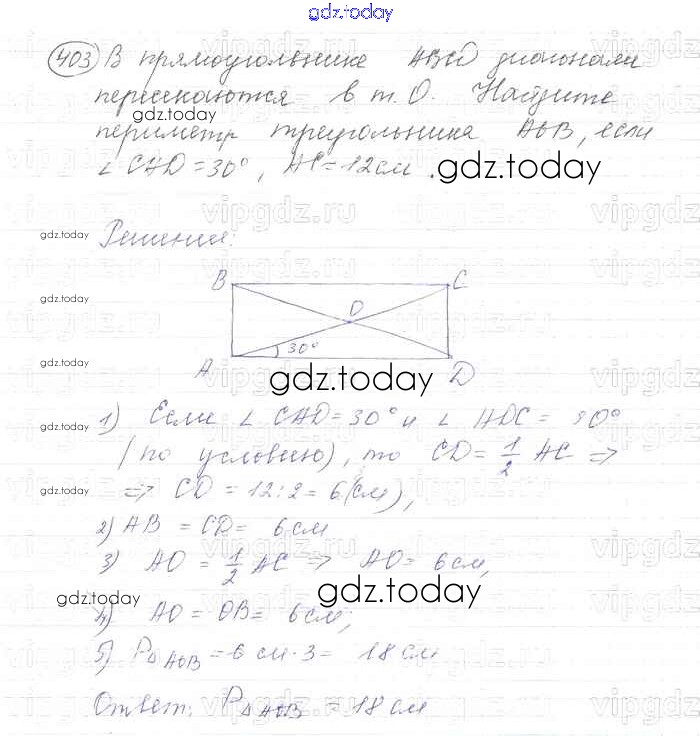 gdz.today
403 В прямоугольнике ABCD диагонали
пересекаются в т. О. Найдите
периметр треугольника AOB, если
∠ CAD = 30°, AC = 12 см
gdz.today
.gdz.today
vipgdz.ru
Решение:
gdz.today
B C
O
gdz.today
A 30° D
gdz.today
gdz.today
1) Если ∠ CAD = 30° и ∠ ADC = 90°
gdz.today
(по условию), то CD = 1/2 AC ⇒
⇒ CD = 12 : 2 = 6 (см),
gdz.today
2) AB = CD = 6 см
3) AO = 1/2 AC ⇒ AO = 6 см,
gdz.today
gdz.today
4) AO = OB = 6 см;
5) P△AOB = 6 см · 3 = 18 см
Ответ: P△AOB = 18 см